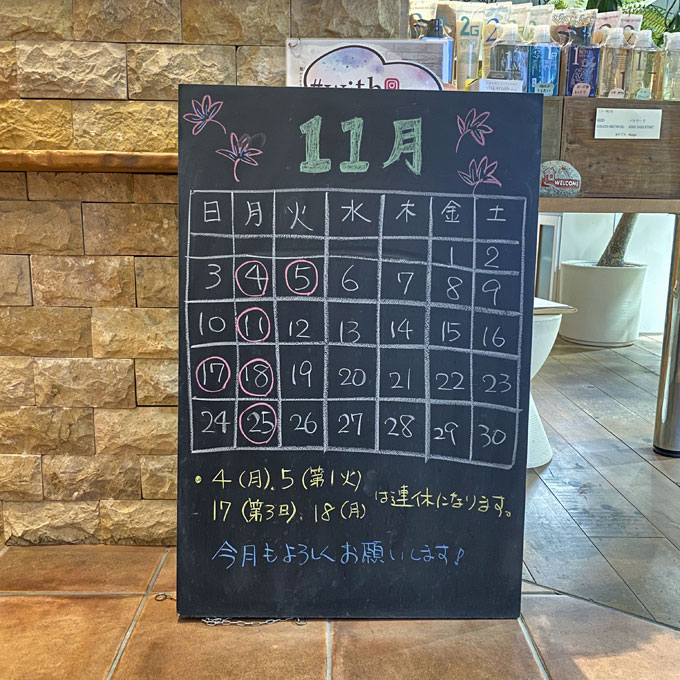 #with
11月
日 月 火 水 木 金 土
1 2
3 4 5 6 7 8 9
10 11 12 13 14 15 16
17 18 19 20 21 22 23
24 25 26 27 28 29 30
・4(月).5(第1火)
17(第3日).18(月)は連休になります。
今月もよろしくお願いします!
WELCOME